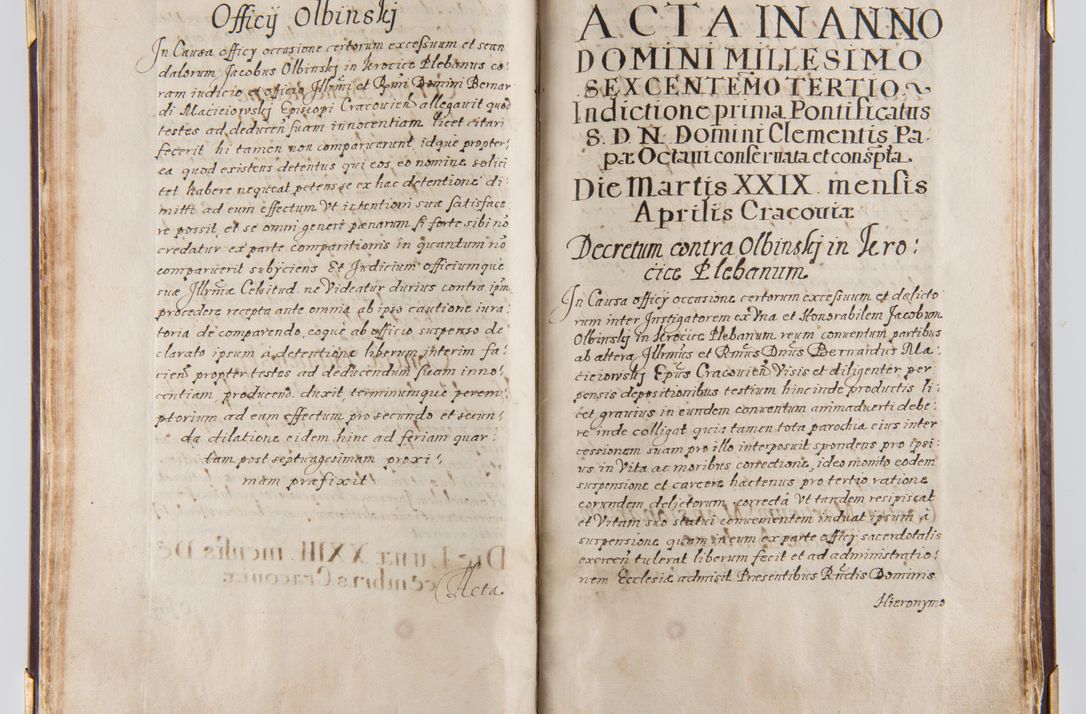 Officÿ Olbinskj
In Causa officÿ occasione certorum excessuum et scan
dalorum Jacobus Olbinskj in Ierocice Plebanus co:
ram iudicio et officio Jllrmi et Rmi Domini Bernar
di Macieiowskj Episcopi Cracovien allegavit quod
testes ad deducen suam innocentiam licet citari
fecerit hi tamen non comparuerunt idque propter:
ea quod existens detentus qui eos eo nomine solici
tet habere nequeat petens se ex hac detentione di:
mitti ad eum effectum Vt intentioni suæ satisface
re possit, et se omni generi pænarum si forte sibi nõ
credatur ex parte comparitionis in quantum nõ
comparuerit subÿciens Et Judicium officiumque
suæ Jllrmæ Celsitud. ne Videatur durius contra ipm
procedere recepta ante omnia ab ipso cautione iura:
toria de comparendo, eoque ab officio suspenso de:
clarato ipsum à detentione liberum interim fa:
cien propter testes ad deducendum suam inno:
centiam producend. duxit, terminumque perem:
ptorium ad eum effectum pro secundo et secun:
da dilatione eidem hinc ad feriam quar:
tam post septuagesimam proxi:
mam præfixit
Acta
ACTA IN ANNO
DOMINI MILLESIMO
SEXCENTEMO TERTIO
Indictione prima Pontificatus
S. D. N. Domini Clementis Pa:
pæ Octaui conseruata et conspta.
Die Martis XXIX mensis
Aprilis Cracouiæ
Decretum contra Olbinskj in Iero:
cice Plebanum
In Causa officÿ occasione certorum excessuum et delicto
rum inter Instigatorem ex Vna et Honorabilem Jacobum
Olbinskj in Ierocice Plebanum reum conuentum partibus
ab altera Jllrmus et Rmus Dnus Bernardus Ma:
cieiowskj Epus Cracovien Visis et diligenter per
pensis depositionibus testium hincinde productis li:
cet grauius in eundem conuentum animaduerti debe:
re inde colligat quia tamen tota parochia eius inter
cessionem suam pro illo interposuit spondens pro ipsi:
us in Vita ac moribus correctione, ideo monito eodem
suspensione et carcere hactenus pro tertio ratione
eorundem delictorum correcta Vt tandem resipiscat
et Vitam suo statui conuenientem induat ipsum à
suspensione quam in eum ex parte officÿ sacerdotalis
exercen tulerat liberum fecit et ad administratio:
nem Ecclesiæ admisit Præsentibus Rndis Dominis
Hieronymo